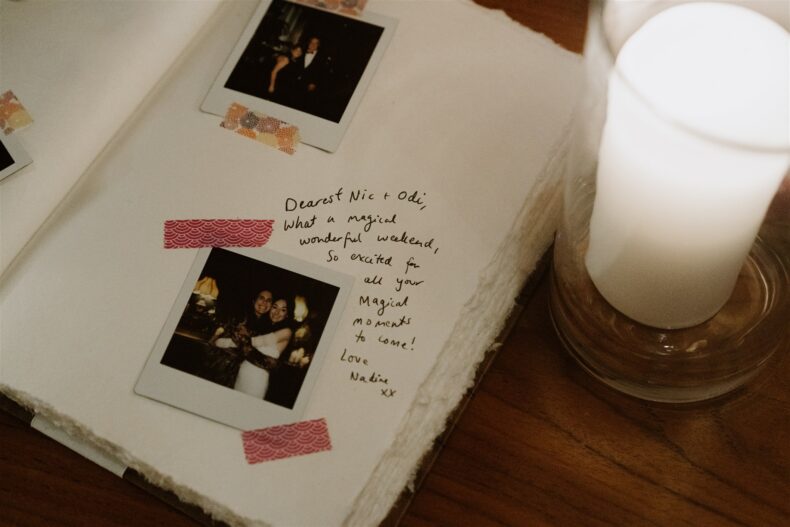 Dearest Nic + Odi,
What a magical
wonderful weekend,
So excited for
all your
Magical
moments
to come!
Love
Nadine
xx